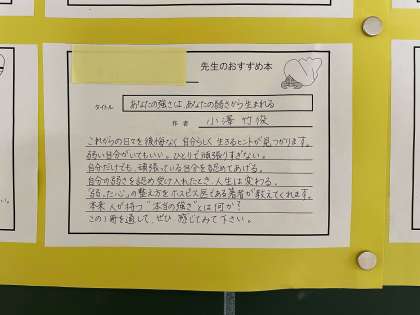 先生のおすすめ本
タイトル あなたの強さは、あなたの弱さから生まれる
作者 小澤 竹俊
これからの日々を後悔なく自分らしく生きるヒントが見つかります。
弱い自分がいてもいい。ひとりで頑張りすぎない。
自分だけでも、頑張っている自分を認めてあげる。
自分の弱さを認め受け入れたとき、人生は変わる。
「弱った心」の整え方をホスピス医である著者が教えてくれます。
本来、人が持つ"本当の強さ"とは何か？
この1冊を通して、ぜひ感じてみて下さい。